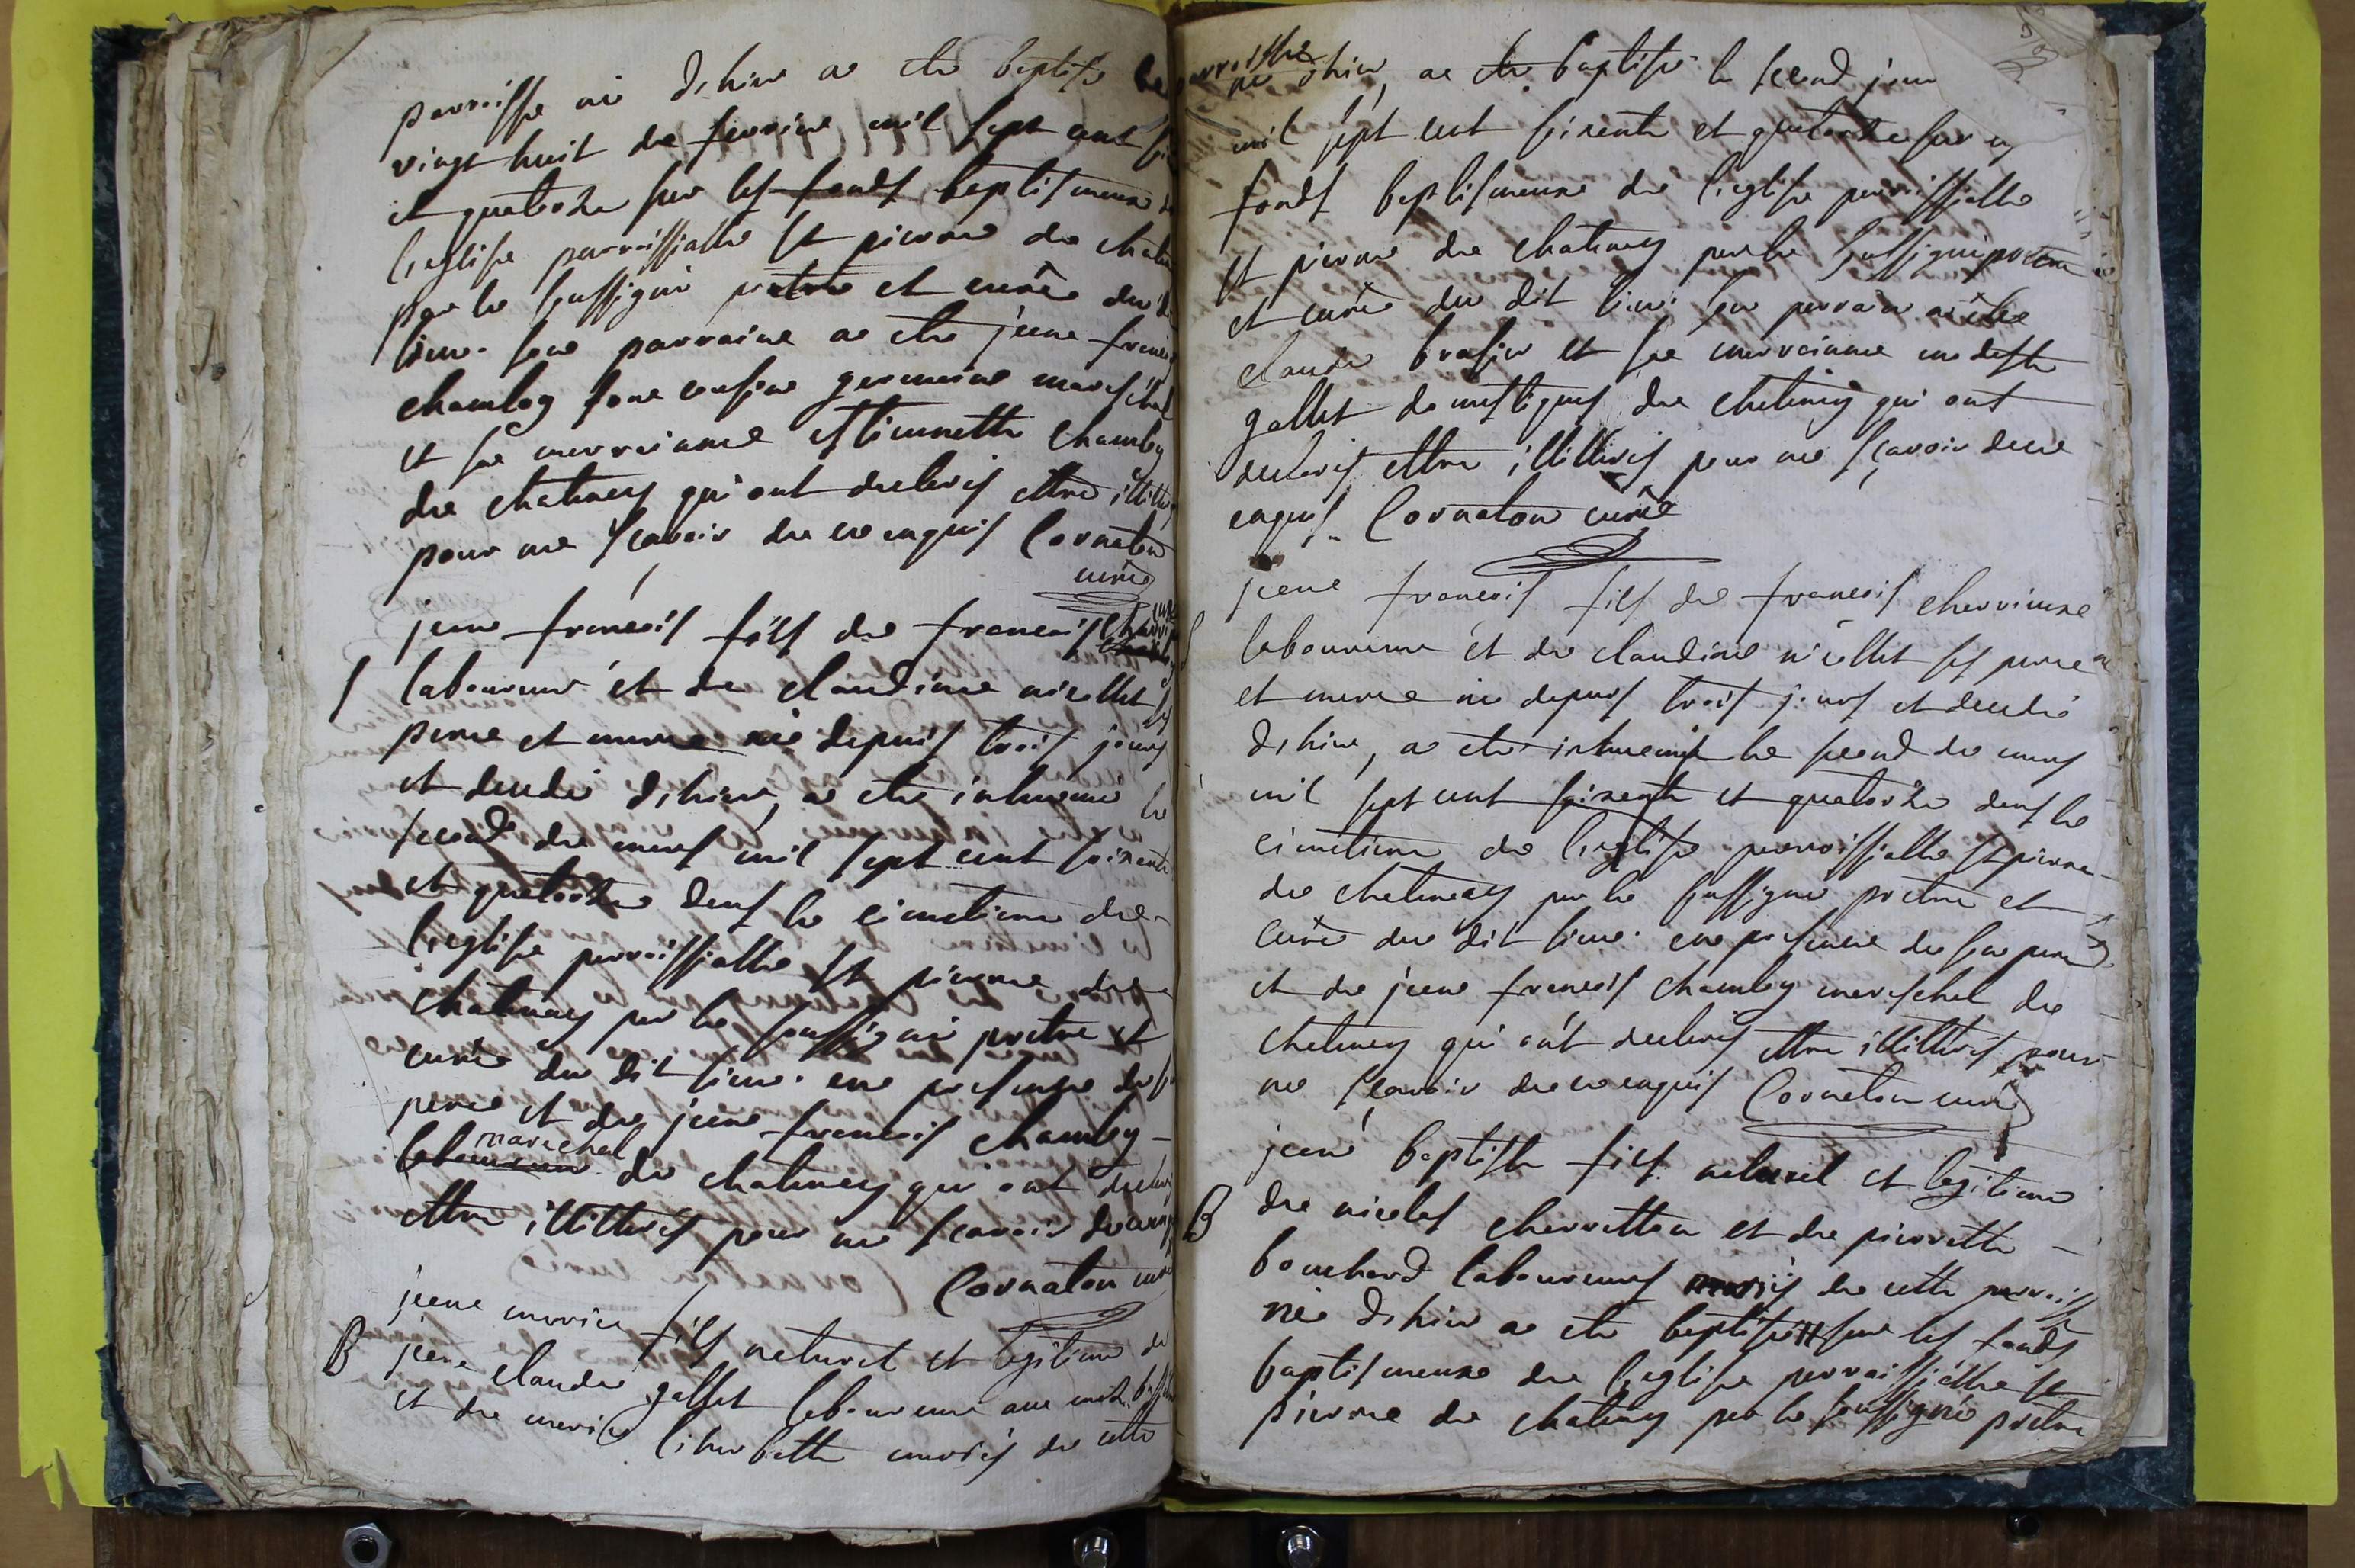 parroisse né d'hier a été baptisé le
vingt huit de fevrier mil sept cent soi
et quatorze sur les fonds baptismeaux de
l'eglise parroissialle St pierre de chaten
par le soussigné pretre et curé du d
lieu. son parraine a été jean françois
chamboy son cousin germaine mareschal
et sa marrainne estiennette chamboy
de chatenay qui ont declarés ettre illitt
pour ne sçavoir de ce enquis Cornaton
curé
jean françois fils de françois
laboureur et de claudine nicollet ses
perre et merre né depuis trois jours
et decedé d'hier, a été inhumé le
second de mars mil sept cent soixante
et quatorze dans le cimetiere de
l'eglise parroissialle St pierre de
chatenay par le soussigné pretre et
curé du dit lieu. en presence de son
perre et de jean françois chamboy
laboureur marechal de chatenay qui ont declar
ettre illittrés pour ne scavoir de ce enq
Cornaton curé
jean marie fils naturel et legitime de
B jean claude gallet laboureur aux
et de marie liberbette mariés de cette
parroisse
né d'hier, a été baptisé le second jour
mil sept cent soixante et quatorze sur
fonds baptismeaux de l'eglise parroissialle
St pierre de chatenay par le soussigné pretre
et curé du dit lieu. son parrain a été
claude brasier et sa marrainne modeste
gallet domestiques de chatenay qui ont
declarés ettre illittrés pour ne sçavoir de ce
enquis. Cornaton curé
jean françois fils de françois charvieux
laboureur et de claudine nicollet ses perre
et merre né depuis trois jours et decedé
d'hier, a été inhumé le second de mars
mil sept cent soixante et quatorze dans le
cimetiere de l'eglise parroissialle St pierre
de chatenay par le soussigné pretre et
curé du dit lieu. en presence de son perre
et de jean françois chamboy mareschal de
chatenay qui ont declarés ettre illittrés pour
ne sçavoir de ce enquis Cornaton curé
jean baptiste fils naturel et legitime
B de nicolas charretton et de pierrette
bouchard laboureurs mariés de cette parroisse
né d'hier a été baptisé sur les fonds
baptismeaux de l'eglise parroissialle St
pierre de chatenay par le soussigné pretre